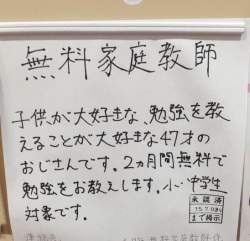 無料家庭教師
子供が大好きな、勉強を教
えることが大好きな47才の
おじさんです。2ヵ月間無料で
勉強をお教えします。小・中学生
対象です。
承認済
15.7.03
まで掲示